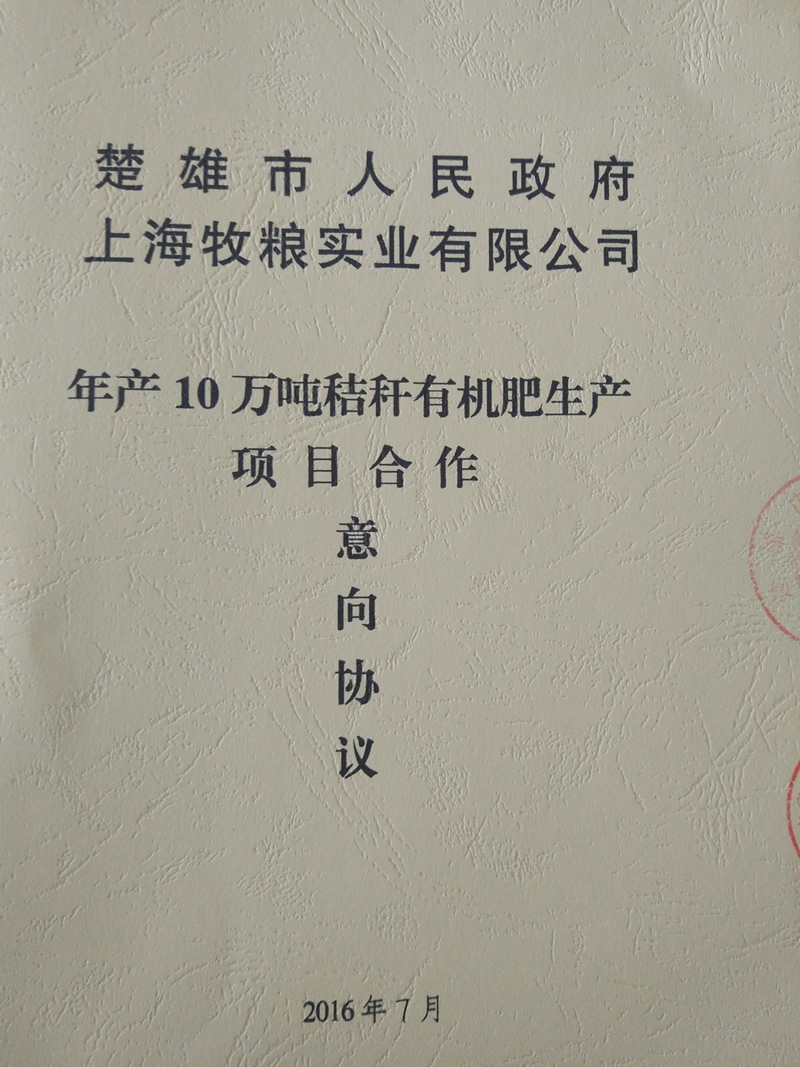 楚雄市人民政府
上海牧粮实业有限公司
年产10万吨秸秆有机肥生产
项目合作
意
向
协
议
2016年7月